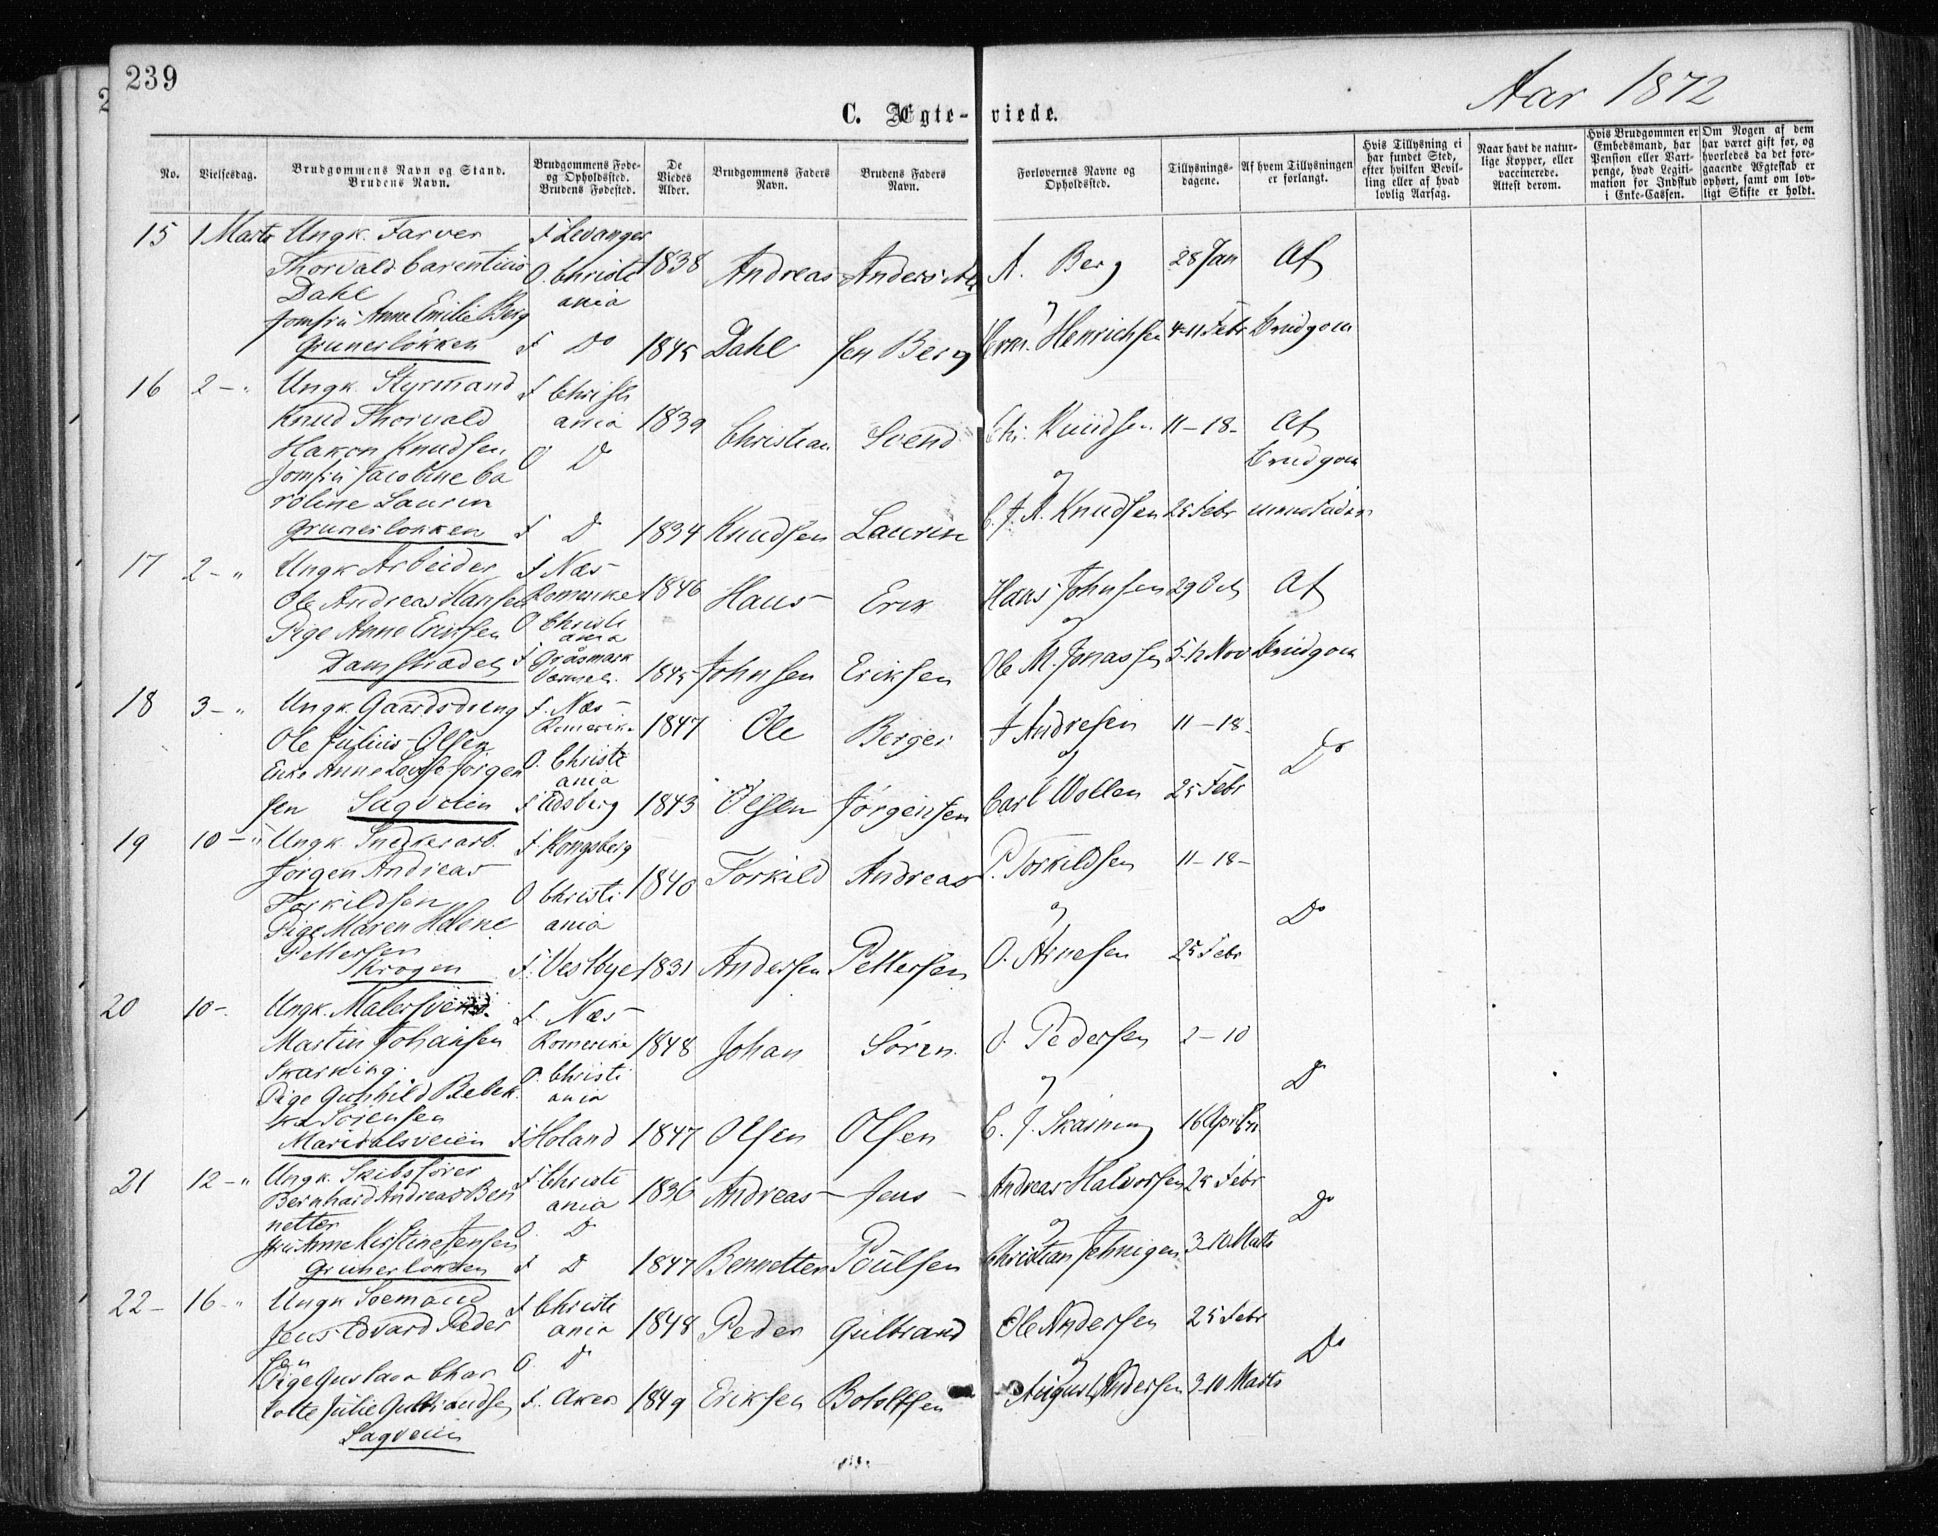 239
Aar 1872
C. Ægte-viede.
No.
Vielsesdag.
Brudgommens Navn og Stand.
Brudens Navn.
Brudgommens Føde-
og Opholdssted.
Brudens Fødested.
De
Viedes
Alder.
Brudgommens Faders
Navn.
Brudens Faders
Navn.
Forlovernes Navne og
Opholdssted.
Tillysnings-
dagene.
Af hvem Tillysningen
er forlangt.
Hvis Tillysning ei
har fundet Sted,
efter hvilken Bevil-
ling eller af hvad
lovlig Aarsag.
Naar havt de natur-
lige Kopper, eller
vaccinerede.
Attest derom.
Hvis Brudgommen er
Embedsmand, har
Pension eller Vart-
penge, hvad Legiti-
mation for Indskud
i Enke-Cassen.
Om Nogen af dem
har været gift før, og
hvorledes da det fore-
gaaende Ægteskab er
ophørt, samt om lov-
ligt Skifte er holdt.
15 1 Marts Ungk. Farver F Levanger
Thorvald Carentius O. Christi 1838 Andreas Anders A. Berg 28 Jan Af
Dahl ania og
Jomfru Anne Emilie Berg
Grunerløkken F Do 1845 Dahl sen Berg Henrichsen 4-11 Febr Brudgom
16 2 - " Ungk. Styrmand F Christi
Knud Thorvald ania 1839 Christian Svend Chr. Knudsen 11-18- Af
Hakon Knudsen O D Brudgom
Jomfru Jacobine Ca og
roline Laurin C. J. A. Knudsen 25 Febr
Grunerløkken F D 1834 Knudsen Laurin
17 2 - " Ungk Arbeider F Næs
Ole Andreas Hansen Romerike 1846 Hans Erik Hans Johnsen 29 Oct Af
Pige Anne Eriksen O Christi ania og
Damstrædet F Gräsmark 1845 Johnsen Eriksen Ole M. Jonassen 5-12 Nov Brudgom
18 3 - " Ungk. Gaardsdreng F. Næs
Ole Julius Olsen Romerike 1847 Ole Berger Andresen 11-18-
Enke Anne Lovise Jørgen O. Christi ania og Do
sen Sagveien F Edsberg 1843 Olsen Jørgensen Carl Wollen 25 Febr
19 10 - " Ungk. Snedkerarb. F. Kongsberg
Jørgen Andreas 1840 Torkild Andreas P. Torkildsen 11-18-
Torkildsen O Christi
Pige Maren Helene ania og Do
Pettersen
Krogen F. Vestbye 1831 Andersen Pettersen O. Arnesen 25 Febr
20 10 -. Ungk. Malersvend. F. Næs
Martin Johansen Romerike 1848 Johan Søren O. Pedersen 2-10
Skarning. O. Christi
Pige Gunhild Rebek ania og Do
ka Sørensen
Maridalsveien F Høland 1847 Olsen Olsen C. J. Skarning 16 April
21 12 - " Ungk. Skibsfører F Christi
Bernhard Andreas Ben ania 1836 Andreas Jens Andreas Halvorsen 25 Febr
netter O. D og Do
Jfru Anne Kirstine Jensen
Grunerløkken F D 1847 Bennetter Poulsen Christian Jehnigen 3-10 Marts
22 - 16 - " Ungk Søemand F Christi
Jens Edvard Peder ania 1848 Peder Gulbrand Ole Andersen 25 Febr
sen O. D og Do
Pige Gustava Char
lotte Julie Gulbrandsen F. Aker 1849 Eriksen Botolfsen August Andersen 3-10 Marts
Sagveien